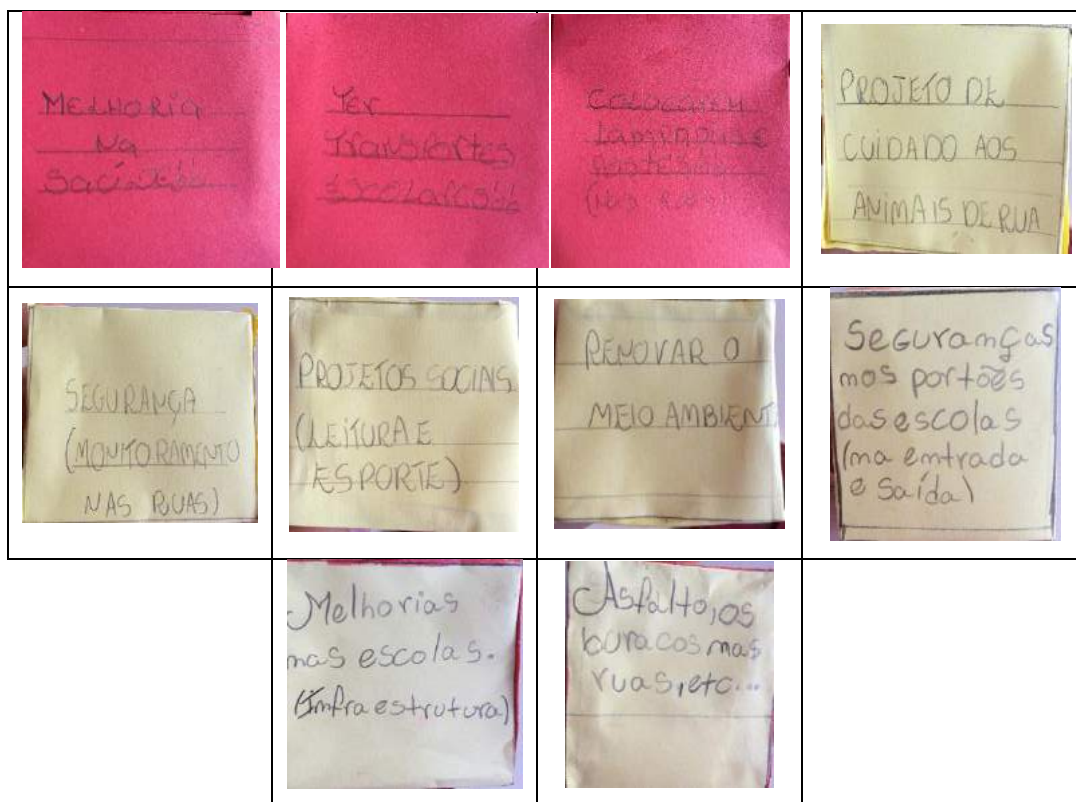 MELHORIA
NA
TER
TRANSPORTES
ESCOLARES
COLOCAREM
LAMPADAS E
POSTES
PROJETO DE
CUIDADO AOS
ANIMAIS DE RUA
SEGURANÇA
(MONITORAMENTO
NAS RUAS)
PROJETOS SOCIAIS
(LEITURA E
ESPORTE)
RENOVAR O
MEIO AMBIENT
Seguranças
nos portões
das escolas
(na entrada
e saída)
Melhorias
nas escolas.
(Infraestrutura)
Asfalto, os
buracos nas
ruas, etc...